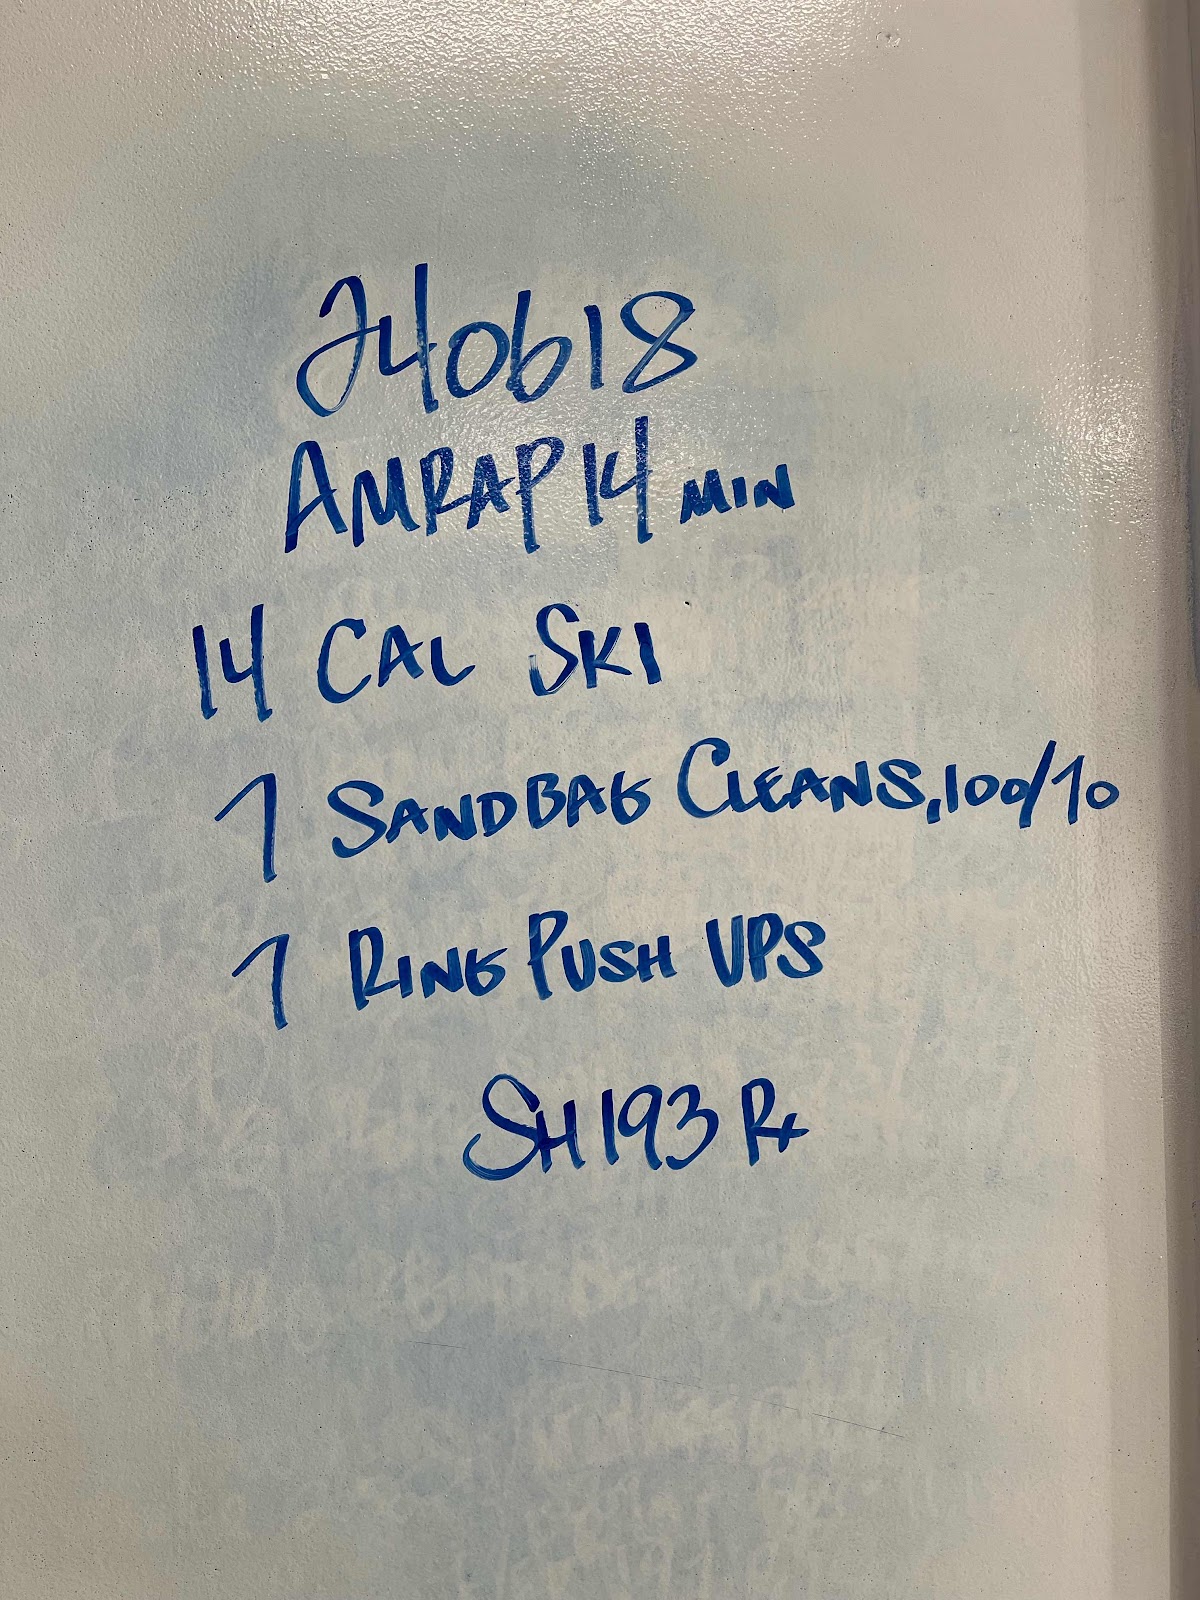 240618
AMRAP 14 MIN
14 CAL SKI
7 SANDBAG CLEANS, 100/70
7 RING PUSH UPS
SH 193 Rx